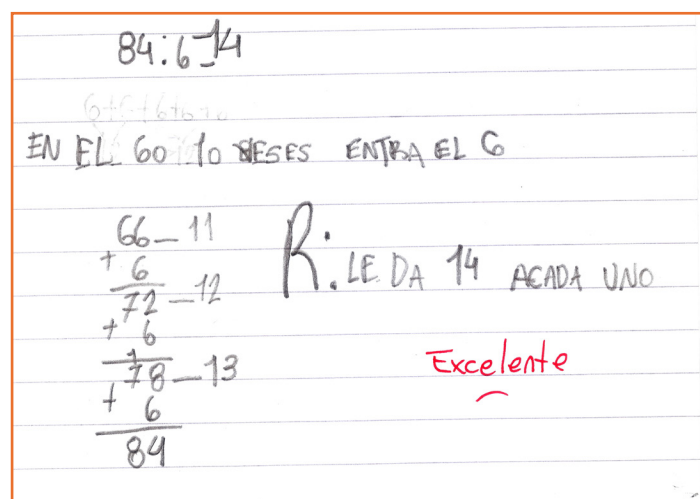 84:6=14
EN EL 60 10 BESES ENTRA EL 6
66—11
+ 6
72—12
+ 6
78—13
+ 6
84
R: LE DA 14 ACADA UNO
Excelente